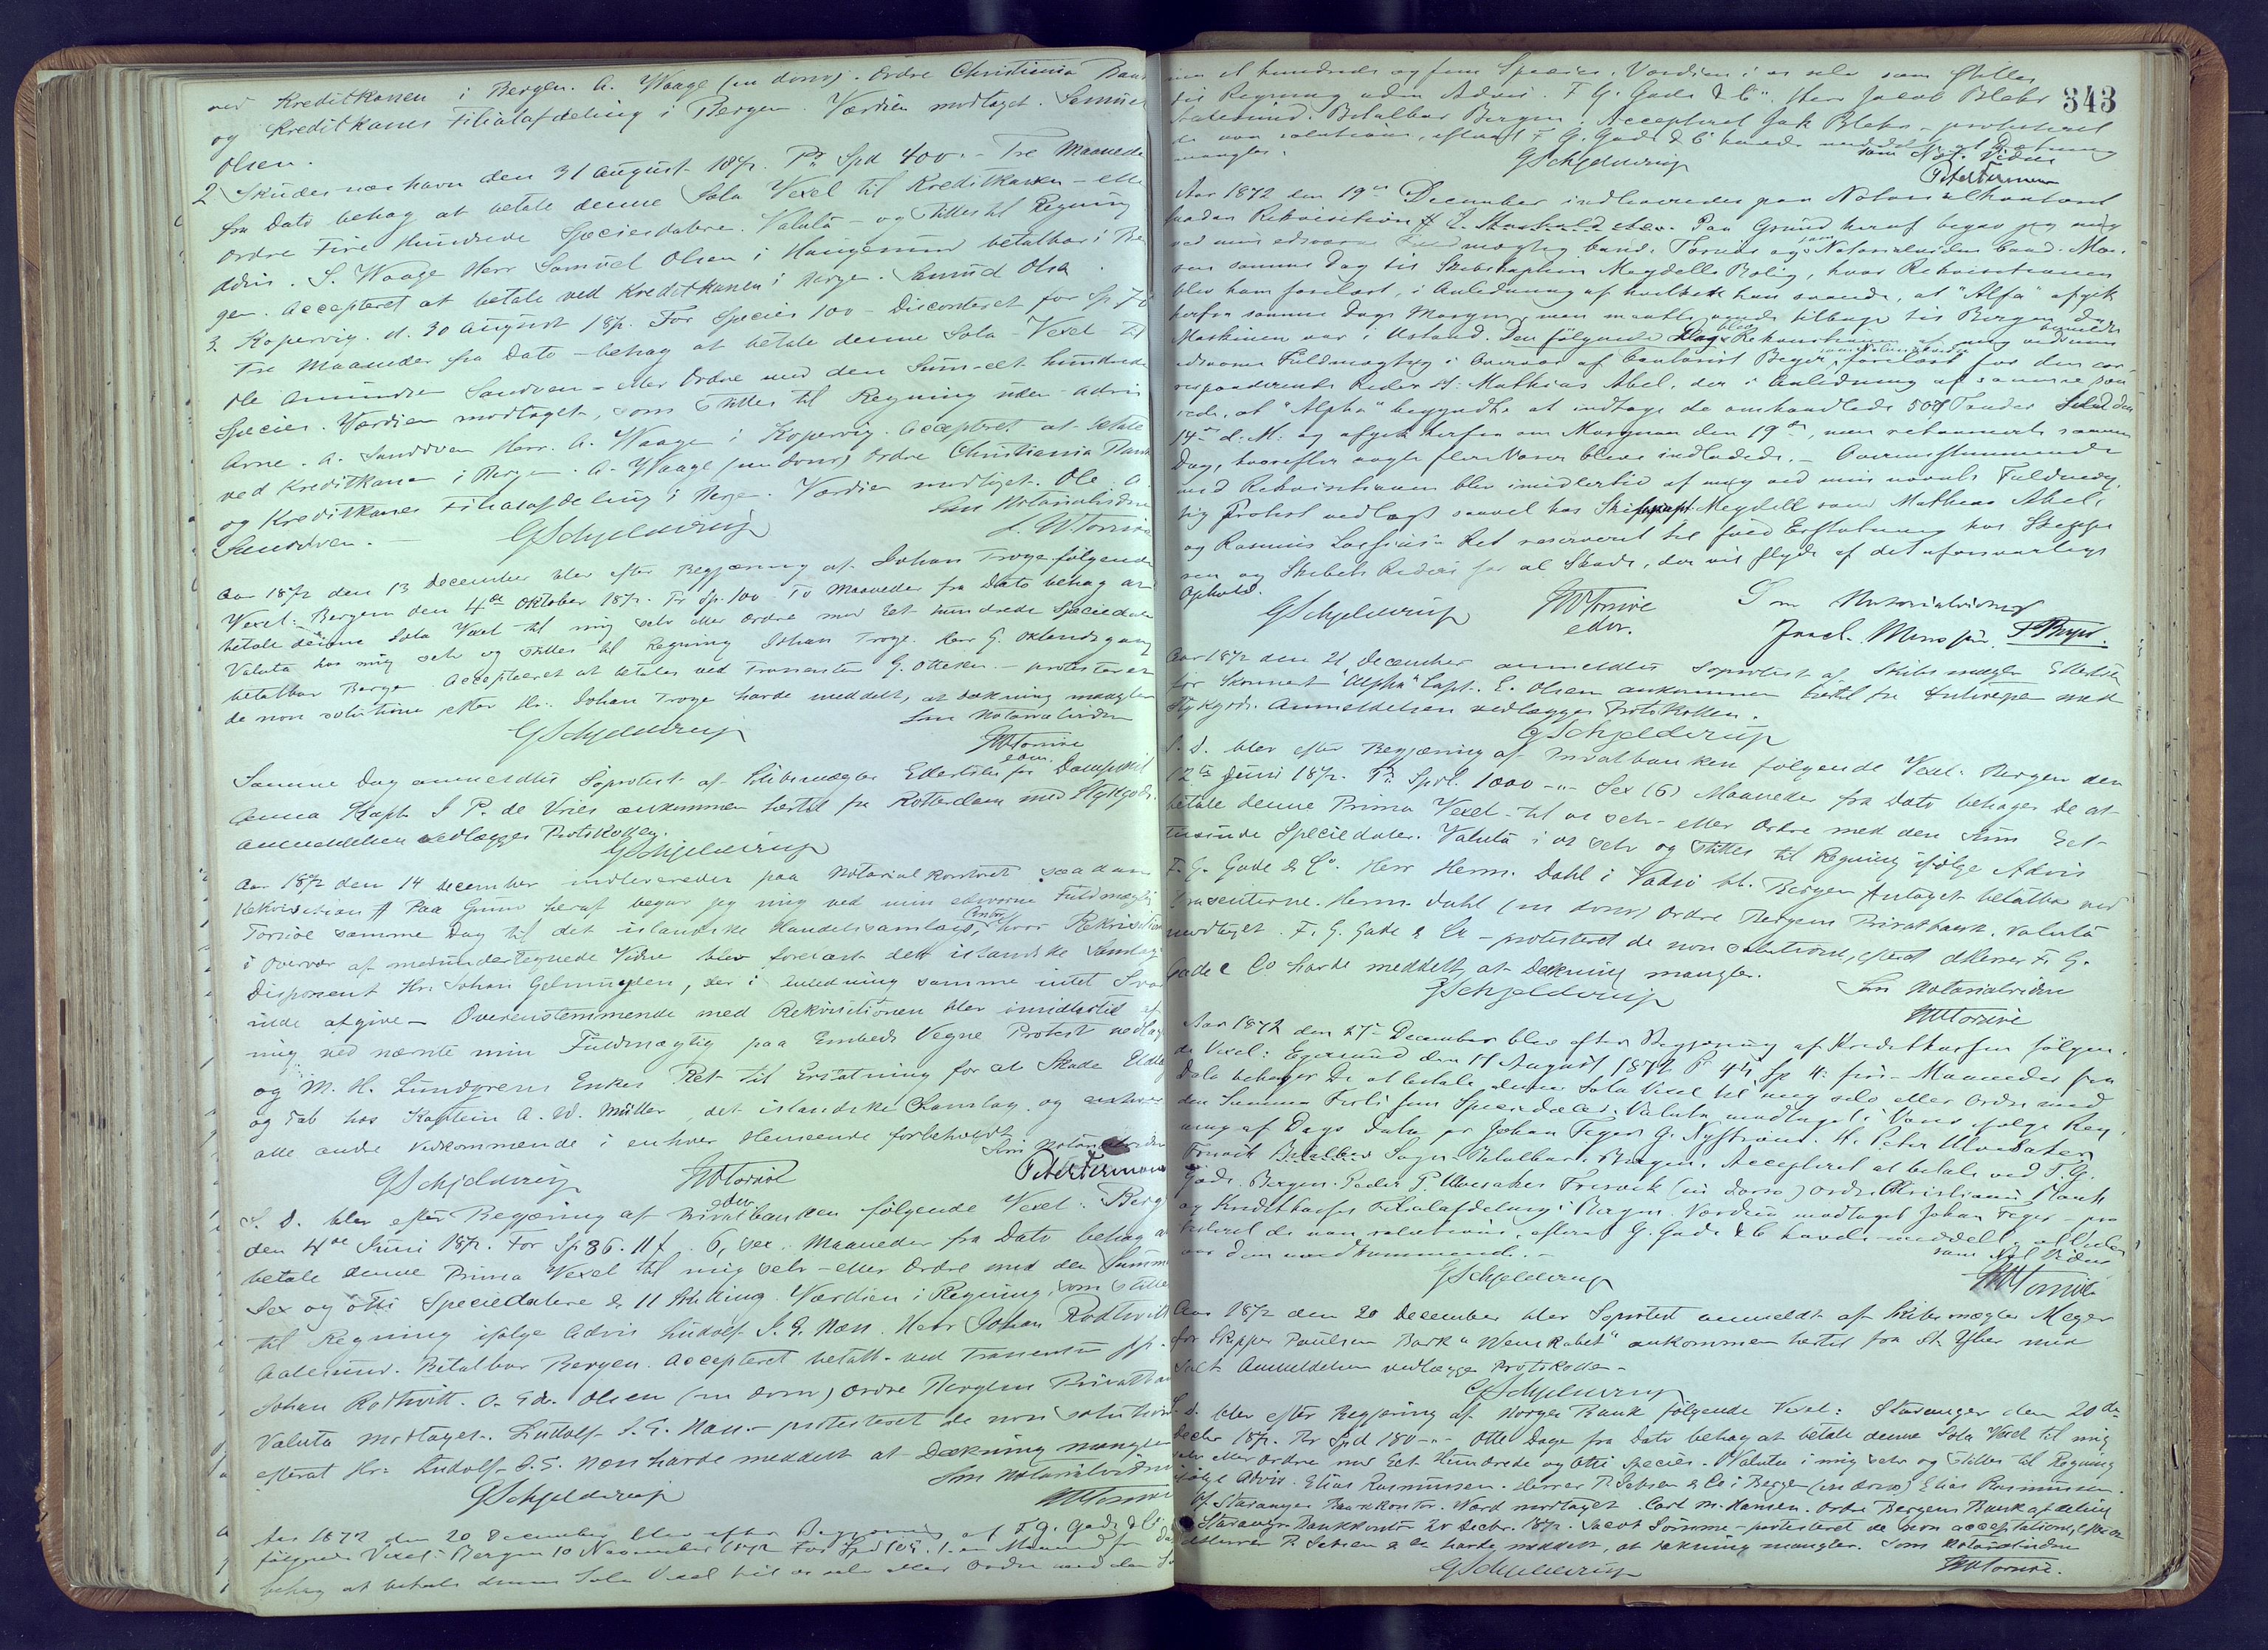 ved Kreditkassen i Bergen. A. Waage (in dorso). Ordre Christiania Bank
og Kreditkasses Filialafdeling i Bergen. Værdien modtaget. Samuel
Olsen.
2 Skudesnæshavn den 31 August 1872. Pr Spd 400.- Tre Maaneder
fra Dato behag at betale denne Sola Vexel til Kreditkassen - eller
ordre Fire Hundrede Speciesdalere. Valuta - og stilles til Regning
Advis. S. Waage Herr Samuel Olsen i Haugesund betalbar i Ber
gen. Accepteret at betale ved Kreditkassen i Bergen. Samuel Olsen.
3. Kopervig. d. 30 August 1872. For Species 100 - Disconteret for Sp 70
Tre Maaneder fra Dato - behag at betale denne Sola-Vexel - til
Ole Amundsen Sandven - eller Ordre med den Sum - et hundrede
Species. Værdien modtaget, som stilles til Regning uden advis
Arne. A. Sandven Herr. A. Waage i Kopervig. Accepteret at betale
ved Kreditkassen i Bergen. A. Waage (in dorso) Ordre Christiania Bank
og Kreditkasses Filialafdeling i Bergen. Værdien modtaget. Ole A.
Sandven. -
GSchjelderup
Som Notarialvidne
Aar 1872 den 13 December blev efter Begjæring af Johan Troye følgende
Vexel: Bergen den 4de Oktober 1872. Pr Sp. 100 To Maaneder fra Dato behag at
betale denne Sola Vexel til mig selv eller Ordre med Et hundrede Speciedaler
Valuta hos mig selv og stilles til Regning Johan Troye. Herr G.
betalbar Bergen. Accepteret at betales ved Trassenten G. Ottesen. - protesteret
de non solutione efter Hr. Johan Troye havde meddelt, at Dækning mangler
GSchjelderup
Som Notarialvidne
Samme Dag anmeldtes Søprotest af Skibsmægler Ellertsen for Dampskib
Anna Kapt. J P. de Vries ankommen hertil fra Rotterdam med Stykgods.
Anmeldelsen vedlægges Protokollen.
GSchjelderup
Aar 1872 den 14 December indleveredes paa Notarialkontoret saadan
Rekvisition # Paa Grund heraf begav jeg mig ved min edsvorne Fuldmægtig
Tornøe samme Dag til det islandske Handelssamlags Contor, hvor Rekvisitionen
i Overvær af medundertegnede Vidne blev forelæst det islandske Samlags
Disponent Hr. Johan Gelmuyden, der i Anledning samme intet Svar
vilde afgive - Overensstemmende med Rekvisitionen blev imidlertid af
mig ved nævnte min Fuldmægtig paa Embeds Vegne Protest nedlagt
og M. H. Lundgrens Enkes Ret til Erstatning for al Skade Udlæg
og Tab hos Kaptein A. W. Müller, det islandske Samlag og enhver
alle andre Vedkommende i enhver Henseende forbeholdt.
Som Notarialvidne
GSchjelderup
S. D. blev efter Begjæring af Privatbanken følgende Vexel: Bergen
den 4de Juni 1872. For Sp 86. 11 ß. 6, sex. Maaneder fra Dato behag at
betale denne Prima Vexel til mig selv - eller Ordre med den Summa
Sex og otti Speciedalere & 11 Skilling. Værdien i Regning, som stilles
til Regning ifølge Advis Ludolf J. E. Næss. Herr Johan
Aalesund. Betalbar Bergen. Accepteret betalb. ved Trassenten
Johan Olsen (in dorso) Ordre Bergens Privatbank
Valuta modtaget. Ludolf J. E. Næss. - protesteret de non solutione
efterat Hr. Ludolf J. E. Næss havde meddelt at Dækning mangler
Som Notarialvidne
GSchjelderup
Aar 1872 den 20 December blev efter Begjæring af F. G. Gade & Co.
følgende Vexel: Bergen 10 November 1872 For Spd 105. 1. en Maaned fra Dato
behag at betale denne Sola Vexel til os selv eller Ordre med den
343
et hundrede og fem Species. Værdien i os selv som stilles
til Regning uden Advis. F. G. Gade & Co. Herr Jacob Blehr
Aalesund. Betalbar Bergen. Accepteret Jak Blehr - protesteret
de non solutione, efterat F. G. Gade & Co havde meddelt at Dækning
mangler.
GSchjelderup
som Not. Vidne
Aar 1872 den 19de December indleveredes paa Notarialkontoret
saadan Rekvisition # Paa Grund heraf begav jeg mig
ved min edsvorne Fuldmægtig Cand. Tornøe og som Notarialvidne Cand. Mon-
sen samme Dag til Skibskaptein Meydells Bolig, hvor Rekvisitionen
blev ham forelæst, i Anledning af hvilken han svarede, at "Alfa" afgik
herfra samme Dags Morgen, men maatte vende tilbage til Bergen da
Maskinen var i Ustand. Den følgende Dag blev Rekvisitionen af mig ved min
edsvorne Fuldmægtig i Overvær af Contorist Beyer forelæst for den cor-
responderende Reder Hr Mathias Abel, der i Anledning af samme sva-
rede, at "Alpha" begyndte at indtage de omhandlede 500 Tønder Sild den
14de d. M. og afgik herfra om Morgenen den 19de, men returnerede samme
Dag, hvorefter nogle flere Varer blev indladede. - Overensstemmende
med Rekvisitionen blev imidlertid af mig ved min nævnte Fuldmæg-
tig Protest nedlagt saavel hos Skibskapt. Meydell som Mathias Abel,
og Rasmus Ret reserveret til fuld Erstatning hos Skippe-
ren og Skibets Rederi for al Skade, der vil flyde af det uforsvarlige
Ophold.
GSchjelderup
edsv.
Som Notarialvidner
Aar 1872 den 21 December anmeldtes Søprotest af Skibsmægler Ellertsen
for Skonnert "Alpha" Capt. E. Olsen ankommen hertil fra Antwerpen med
Stykgods. Anmeldelsen vedlægges Protokollen.
GSchjelderup
S. D. blev efter Begjæring af Privatbanken følgende Vexel: Bergen den
12te Juni 1872. Pr Spd. 1000 -"- Sex (6) Maaneder fra Dato behager De at
betale denne Prima Vexel - til os selv - eller Ordre med den Sum Et-
tusinde Speciedaler. Valuta i os selv og stilles til Regning ifølge Advis
F. G. Gade & Co. Herr Herm. Dahl i Vadsø bt. Bergen Antaget betalbar ved
Trassenterne. Herm. Dahl (in dorso) Ordre Bergens Privatbank. Valuta
modtaget. F. G. Gade & Co - protesteret de non solutione, efterat dHerrer F. G.
Gade & Co havde meddelt, at Dækning mangler.
GSchjelderup
Som Notarialvidne
Aar 1872 den 27de December blev efter Begjæring af Kreditkassen følgen-
de Vexel: Egersund den 11 August 1872 Pr 45 Sp 4. fire - Maaneder fra
Dato behager De at betale denne Sola Vexel til mig selv eller Ordre med
den Summa Forti fem Speciedaler. Valuta modtaget i Varer ifølge Reg-
ning af Dags Dato pr Johan Feyer G. Nyström. Hr. Peder Ulvesaker
Fresvik Sogn. Betalbar i Bergen. Accepteret at betale ved F. G.
Gade. Bergen. Peder P. Ulvesaker Fresvik (in dorso) Ordre Christiania Bank
og Kreditkasses Filialafdeling i Bergen. Værdien modtaget Johan Feyer - pro-
testeret de non solutione, efterat G. Gade & Co havde meddelt, at Vexlen
var dem uvedkommende. -
som Not Vidne
GSchjelderup
Aar 1872 den 20 December blev Søprotest anmeldt af Skibsmægler Meyer
for Skipper Paulsen Bark "Wenskabet" ankommen hertil fra St. Ybes med
Salt. Anmeldelsen vedlægges Protokollen -
GSchjelderup
S. d. blev efter Begjæring af Norges Bank følgende Vexel: Stavanger den 20de
Decbr 1872. Pr Spd 180 -"- Otte Dage fra Dato behag at betale denne Sola Vexel til mig
selv eller Ordre med Et Hundrede og Otti Species. - Valuta i mig selv og stilles til Regning
ifølge Advis. Elias Rasmussen. Herrer P. Jebsen & Co i Bergen (in dorso) Elias Rasmussen.
Til Stavanger Bankkontor. Værd modtaget. Carl M. Hansen. Ordre Bergens Bankafdeling
Stavanger Bankkontor 20 Decbr. 1872. Jacob Sømme - protesteret de non acceptatione, efterat
dHerrer P. Jebsen & Co havde meddelt, at Dækning mangler. Som Notarialvidne
GSchjelderup